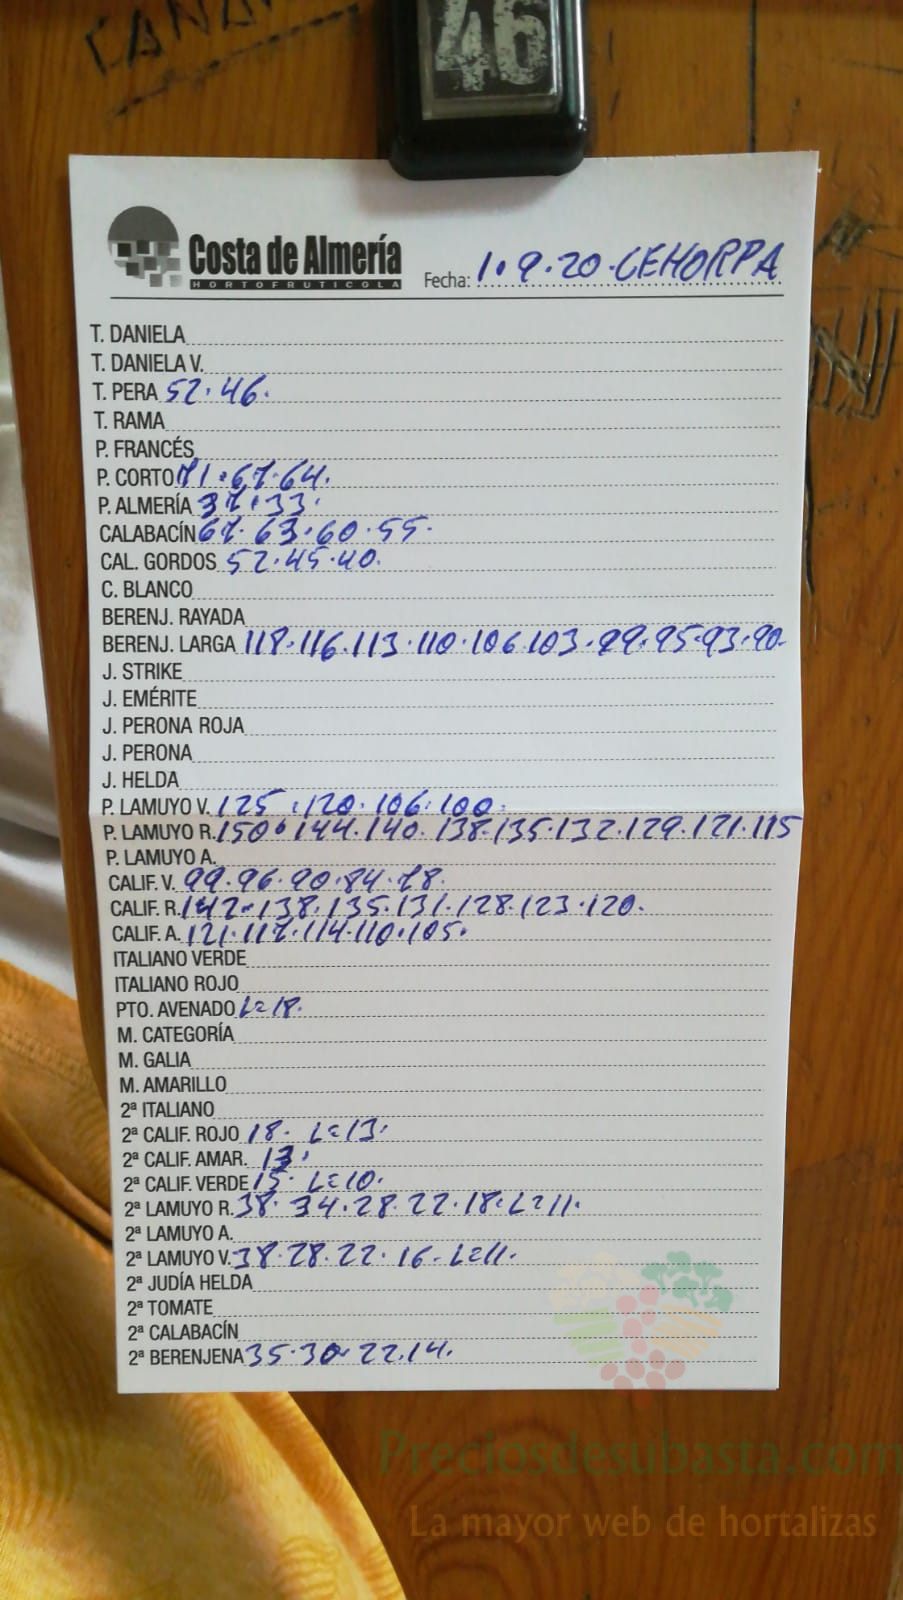 46
Costa de Almería
HORTOFRUTICOLA
Fecha: 1.9.20.CEHORPA
T. DANIELA
T. DANIELA V.
T. PERA 52.46.
T. RAMA
P. FRANCÉS
P. CORTO 71.67.64.
P. ALMERÍA 37.33.
CALABACÍN 67.63.60.55.
CAL. GORDOS 52.45.40.
C. BLANCO
BERENJ. RAYADA
BERENJ. LARGA 118.116.113.110.106.103.99.95.93.90.
J. STRIKE
J. EMÉRITE
J. PERONA ROJA
J. PERONA
J. HELDA
P. LAMUYO V. 125.120.106.100.
P. LAMUYO R. 150.144.140.138.135.132.129.121.115
P. LAMUYO A.
CALIF. V. 99.96.90.84.78.
CALIF. R. 142.138.135.131.128.123.120.
CALIF. A. 121.117.114.110.105.
ITALIANO VERDE
ITALIANO ROJO
PTO. AVENADO L=18.
M. CATEGORÍA
M. GALIA
M. AMARILLO
2ª ITALIANO
2ª CALIF. ROJO 18. L=13.
2ª CALIF. AMAR. 13.
2ª CALIF. VERDE 15. L=10.
2ª LAMUYO R. 38.34.28.22.18.L=11.
2ª LAMUYO A.
2ª LAMUYO V. 38.28.22.16.L=11.
2ª JUDÍA HELDA
2ª TOMATE
2ª CALABACÍN
2ª BERENJENA 35.30.22.14.
Preciosdesubasta.com
La mayor web de hortalizas